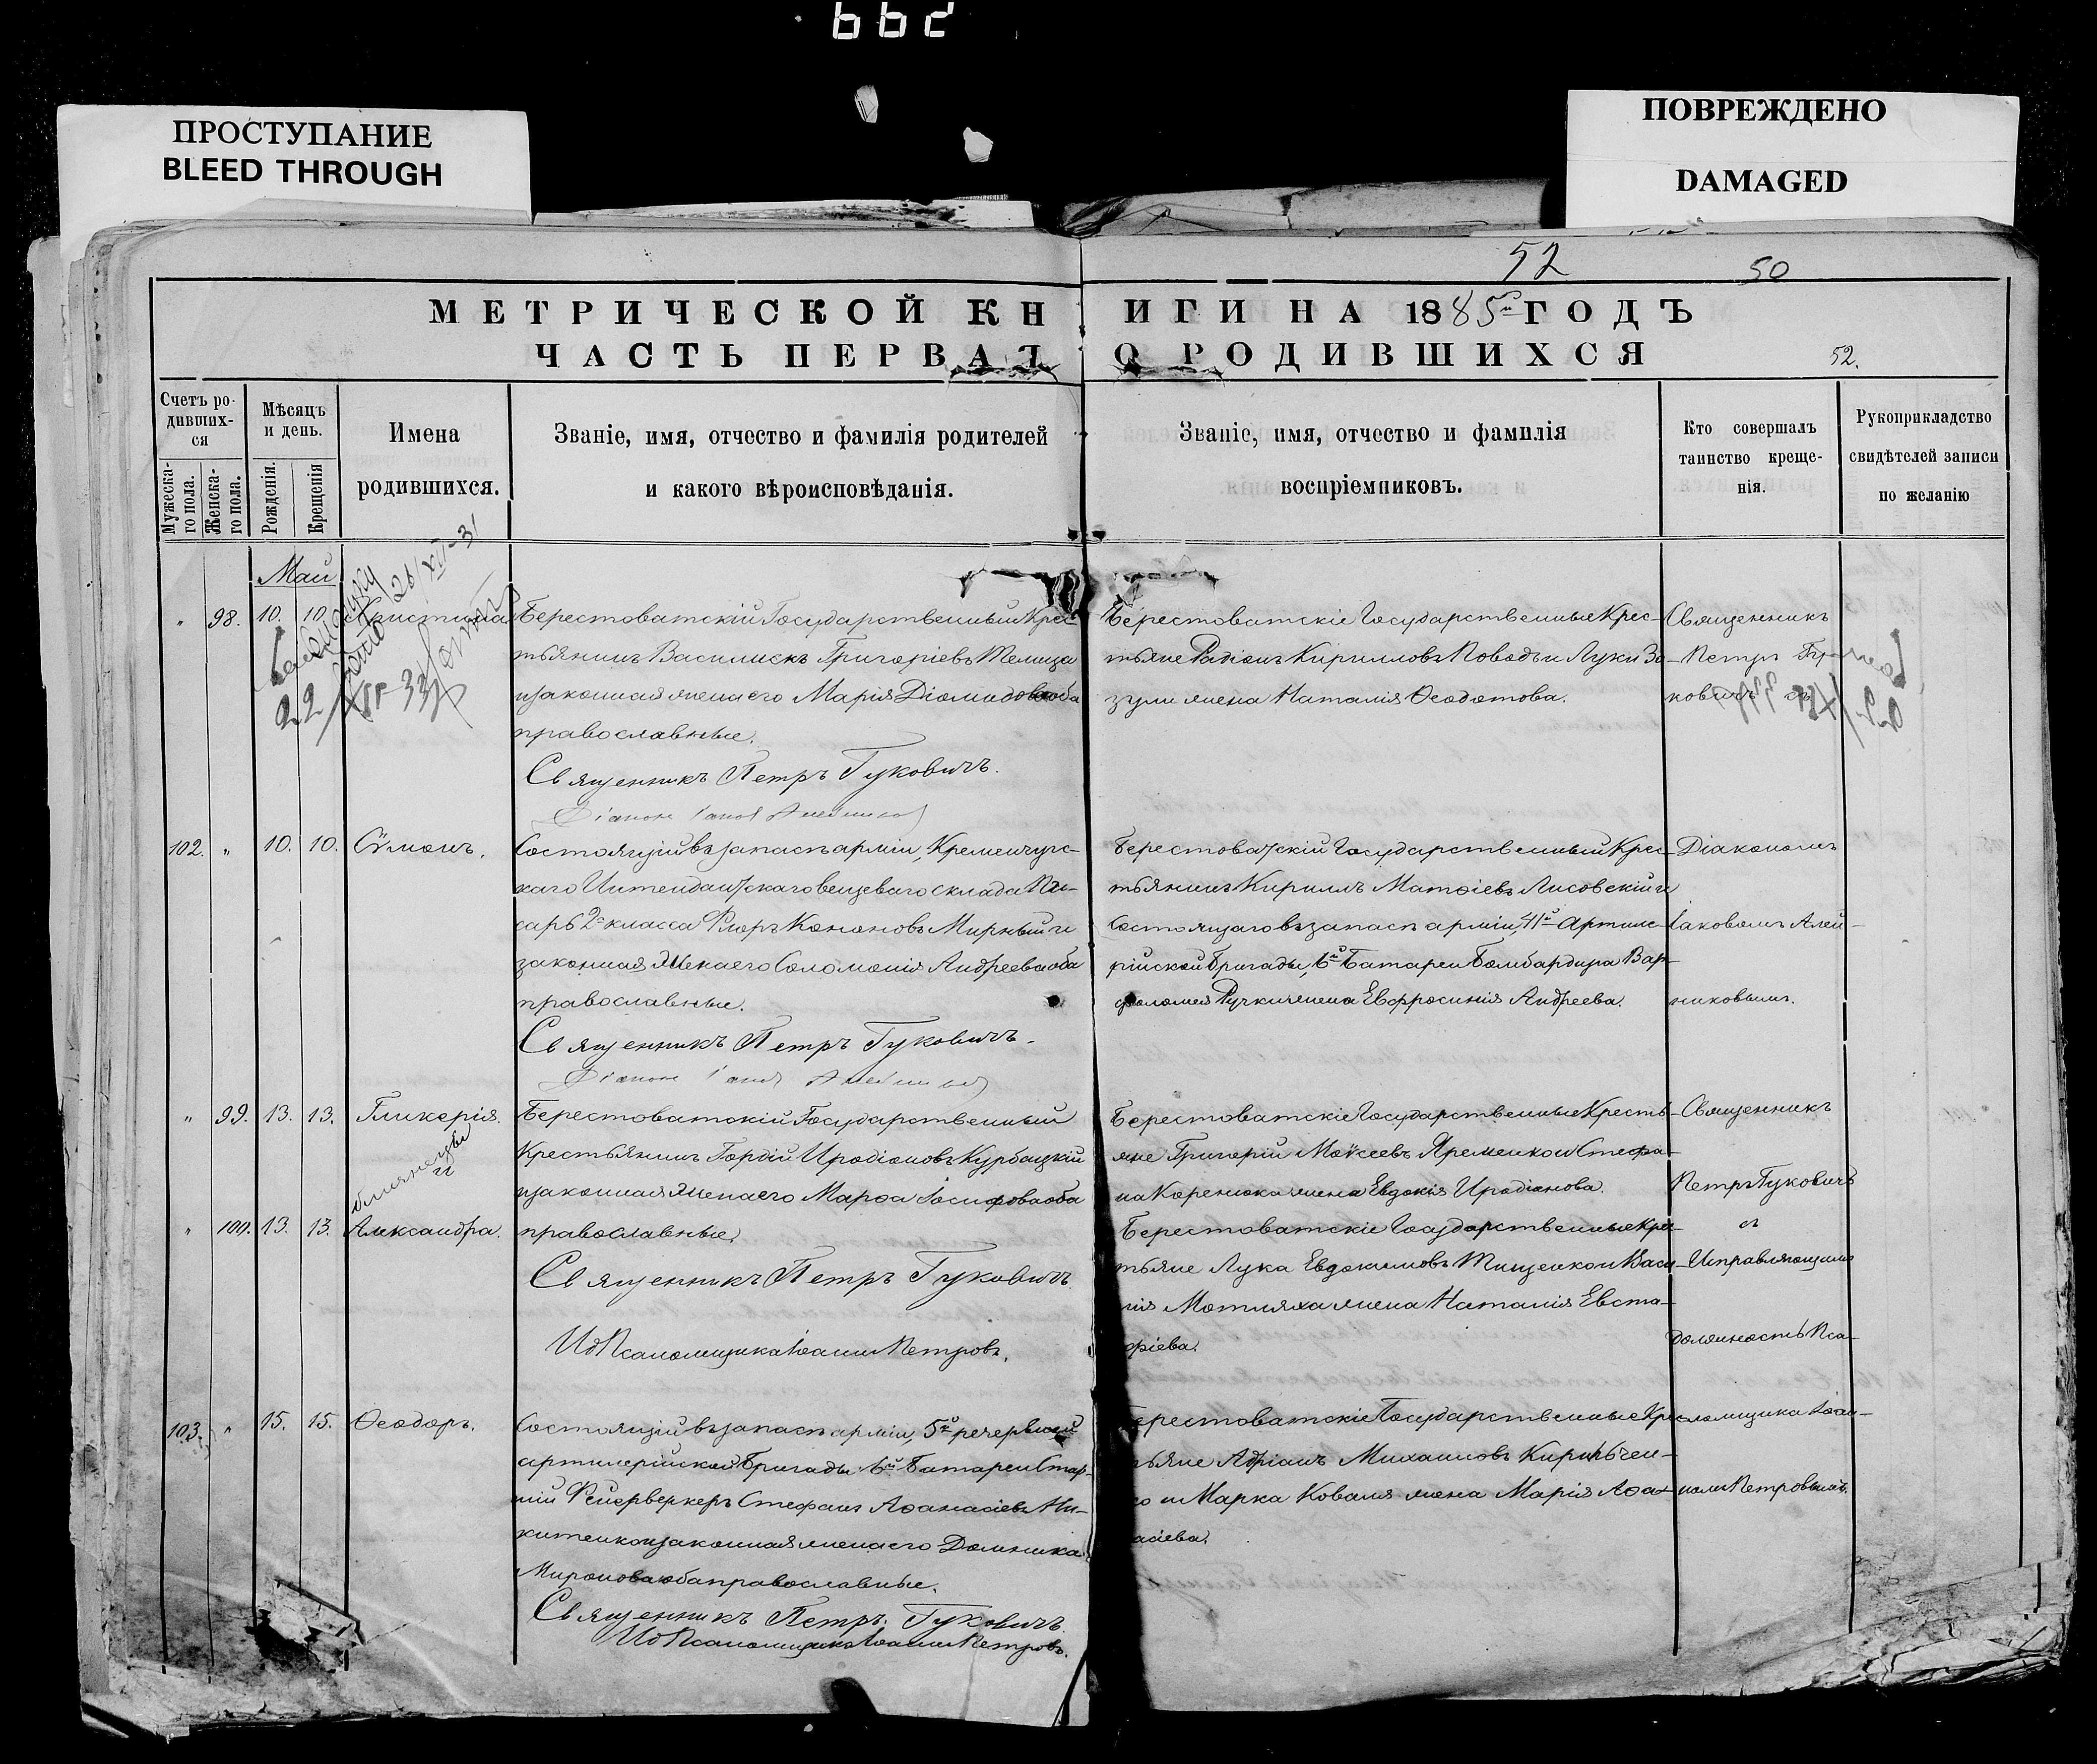 662
ПРОСТУПАНИЕ
BLEED THROUGH
ПОВРЕЖДЕНО
DAMAGED
52
50
МЕТРИЧЕСКОЙ КНИГИ НА 1885й ГОДЪ
ЧАСТЬ ПЕРВАЯ О РОДИВШИХСЯ
52.
Счетъ ро-
дивших-
ся
Мужеска-
го пола.
Женска-
го пола.
Мѣсяцъ
и день.
Рожденія.
Крещенія
Имена
родившихся.
Званіе, имя, отчество и фамилія родителей
и какого вѣроисповѣданія.
Званіе, имя, отчество и фамилія
воспріемниковъ.
Кто совершалъ
таинство креще-
нія.
Рукоприкладство
свидѣтелей записи
по желанію
Май
" 98. 10. 10. Христина
26/XII-31
22
Берестоватскій Государственный Крес-
тьянинъ Василискъ Григоріевъ
и законная жена его Марія Діомидова оба
православные.
Священникъ Петръ Гуковичъ.
Берестоватскіе Государственные Крес-
тьяне Родіонъ Кирилловъ Поводъ и Луки За-
зули жена Наталія Ѳеодотова.
Священникъ
Петръ Гу-
ковичъ съ
102. " 10. 10. Сѵмонъ.
Состоящій въ запасѣ арміи, Кременчугс-
каго Интендантскаго вещеваго склада Пи-
сарь 2го класса Флоръ Кононовъ Мирный и
законная жена его Соломонія Андреева оба
православные.
Священникъ Петръ Гуковичъ.
Берестоватскій Государственный Крес-
тьянинъ Кириллъ Матѳіевъ Лисовскій и
Состоящаго въ запасѣ арміи, 41й Артиле-
рійской Бригады, 6й Батареи Бомбардира Вар-
фоломея Ручки жена Евфросинія Андреева.
Діакономъ
Іаковомъ Алей-
никовымъ.
" 99. 13. 13. Гликерія.
близнецы
" 100. 13. 13. Александра.
Берестоватскій Государственный
Крестьянинъ Гордій Иродіоновъ Курбацкій
и законная жена его Марѳа Іосифова оба
православные.
Священникъ Петръ Гуковичъ.
Ид Псаломщика Іоаннъ Петровъ.
Берестоватскіе Государственные Кресть-
яне Григорій Моѵсеевъ Яременко и Стефа-
на Коренюка жена Евдокія Иродіонова.
Берестоватскіе Государственные Крес-
тьяне Лука Евдокимовъ Тищенко и Васи-
лія Мотляха жена Наталія Евста-
фіева.
Священникъ
Петръ Гуковичъ
съ
Исправляющимъ
должность Пса-
ломщика Іоан-
номъ Петровымъ.
103. " 15. 15. Ѳеодоръ.
Состоящій въ запасѣ арміи, 5й резервной
артилерійской Бригады 6й Батареи Стар-
шій Фейерверкеръ Стефанъ Аѳанасіевъ Ни-
китенко и законная жена его Домника
Миронова оба православные.
Священникъ Петръ Гуковичъ.
Ид Псаломщика Іоаннъ Петровъ.
ерестоватскіе Государственные Крес-
тьяне Адріанъ Михаиловъ Кириьчен-
ко и Марка Коваля жена Марія Аѳа-
насіева.